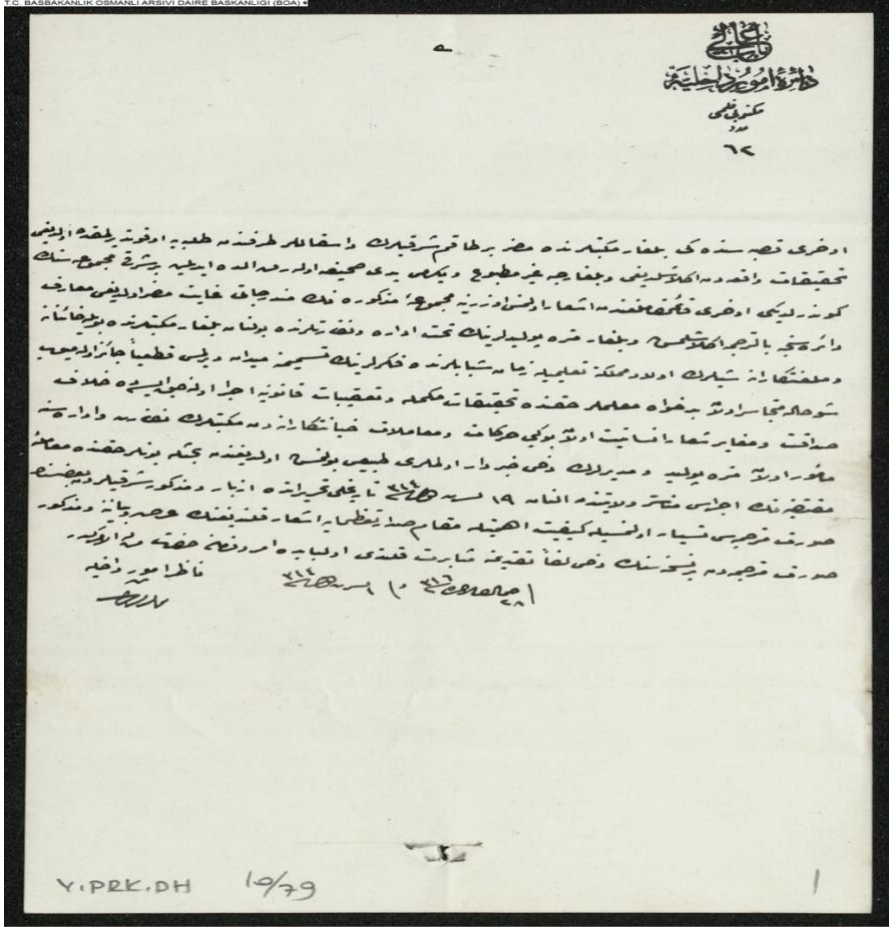 T.C. BASBAKANLIK OSMANLI ARSIVI DAIRE BASKANLIGI (BOA)
باب عالی
دائرهٔ امور داخلیه
مکتوبی قلمی
عدد
٦٢
اوخری قصبه سنده کی بلغار مکتبلرنده مضر بر طاقم شرقیلرك طرفندن طلبه یه اوقوتدیرلمقده اولدیغی
تحقیقات واقعه دن اکلاشلدیغی وبلغارجه غیر مطبوع ویکرمی یدی صحیفه اوله رق الده ایدیلن بر شرقی مجموعه سنك
کوندرلدیکی اوخری قائممقاملغندن اشعار اولنمسی اوزرینه مجموعهٔ مذکوره نك مندرجاتی غایت مضر اولدیغی معارف
دائره سنجه بالترجمه اکلاشلمش وبلغار متره پولیدلرینك تحت اداره ونظارتلرنده بولنان بلغار مکتبلرنده بویله خائنانه
وملعنتکارانه شیلرك اولاد مملکته تعلیمیله فکرلرینك تسمیمنه میدان ویرلمسی قطعیا جائز اوله میوب
شو حاله متجاسر اولان بدخواه معلملر حقنده تحقیقات مکمله وتعقیبات قانونیه اجرا خلاف
صداقت ومغایر شعار انسانیت اولان بوکبی حرکات ومعاملات خیانتکارانه دن مکتبلرك نظارت واداره سنه
مأمور اولان متره پولید ومدیرلرك دخی خبردار اولملری طبیعی بولنمش اولدیغندن بحثله بونلر حقنده معاملهٔ
مقتضیه نك اجراسی مناستر ولایتندن النان ١٩ سنه ٣١٤ تاریخلی تحریراتده ازبار ومذکور شرقیلردن بعضیسنك
صورت مترجمه سی تسیار اولنمسیله کیفیت اهمیتله مقام صدارت عظمایه اشعار قلندیغنك عرض وبیاننه ومذکور
صورت مترجمه دن بر نسخه سنك دخی لفا تقدیمنه مبادرت قلندی اولبابده امر وفرمان حضرت من له الامرکدر
٢٨ ٣١٦ ٣١٤
ناظر امور داخلیه
Y.PRK.DH 10/79
1